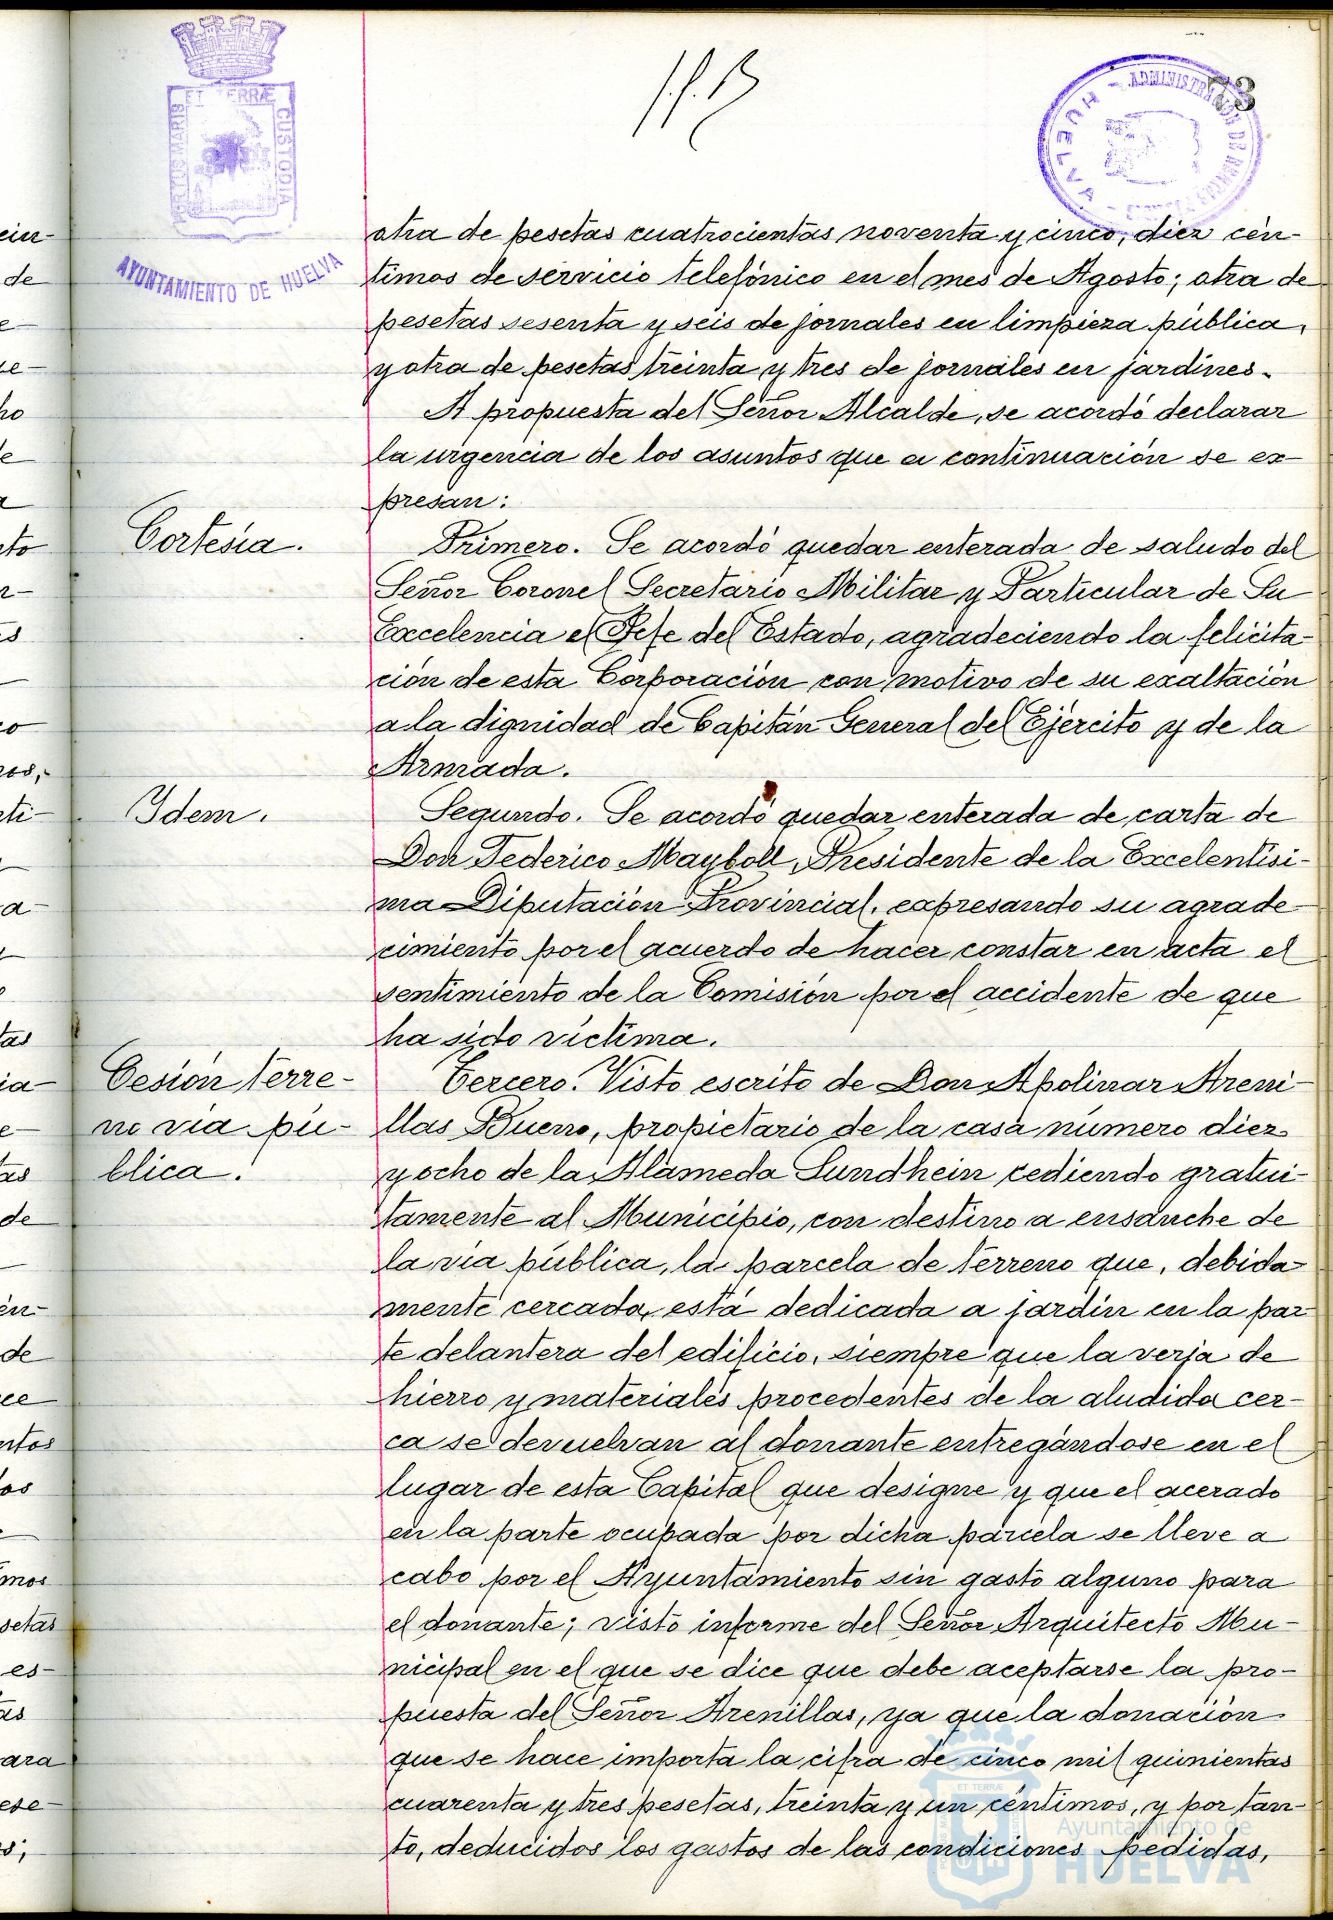 73
PORTUS MARIS ET TERRÆ CUSTODIA
AYUNTAMIENTO DE HUELVA
HUELVA
otra de pesetas cuatrocientas noventa y cinco, diez cén-
timos de servicio telefónico en el mes de Agosto; otra de
pesetas sesenta y seis de jornales en limpieza pública,
y otra de pesetas treinta y tres de jornales en jardines.
A propuesta del Señor Alcalde, se acordó declarar
la urgencia de los asuntos que a continuación se ex-
presan:
Cortesía.
Primero. Se acordó quedar enterada de saludo del
Señor Coronel Secretario Militar y Particular de Su
Excelencia el Jefe del Estado, agradeciendo la felicita-
ción de esta Corporación con motivo de su exaltación
a la dignidad de Capitán General del Ejército y de la
Armada.
Ydem.
Segundo. Se acordó quedar enterada de carta de
Don Federico Mayboll, Presidente de la Excelentísi-
ma Diputación Provincial, expresando su agrade-
cimiento por el acuerdo de hacer constar en acta el
sentimiento de la Comisión por el accidente de que
ha sido víctima.
Cesión terre-
no vía pú-
blica.
Tercero. Visto escrito de Don Apolinar Areni-
llas Bueno, propietario de la casa número diez
y ocho de la Alameda Sundhein cediendo gratui-
tamente al Municipio, con destino a ensanche de
la vía pública, la parcela de terreno que, debida-
mente cercada, está dedicada a jardín en la par-
te delantera del edificio, siempre que la verja de
hierro y materiales procedentes de la aludida cer-
ca se devuelvan al donante entregándose en el
lugar de esta Capital que designe y que el acerado
en la parte ocupada por dicha parcela se lleve a
cabo por el Ayuntamiento sin gasto alguno para
el donante; visto informe del Señor Arquitecto Mu-
nicipal en el que se dice que debe aceptarse la pro-
puesta del Señor Arenillas, ya que la donación
que se hace importa la cifra de cinco mil quinientas
cuarenta y tres pesetas, treinta y un céntimos, y por tan-
to, deducidos los gastos de las condiciones pedidas,
Ayuntamiento de
HUELVA